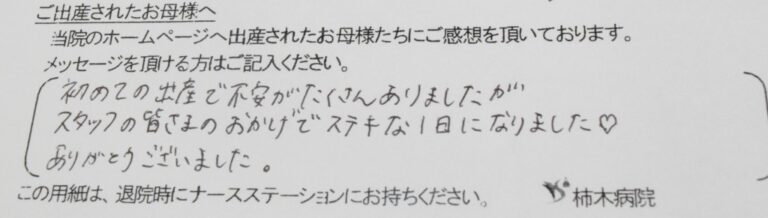 ご出産されたお母様へ
当院のホームページへ出産されたお母様たちにご感想を頂いております。
メッセージを頂ける方はご記入ください。
初めての出産で不安がたくさんありましたが
スタッフの皆さまのおかげでステキな1日になりました♡
ありがとうございました。
この用紙は、退院時にナースステーションにお持ちください。 柿木病院